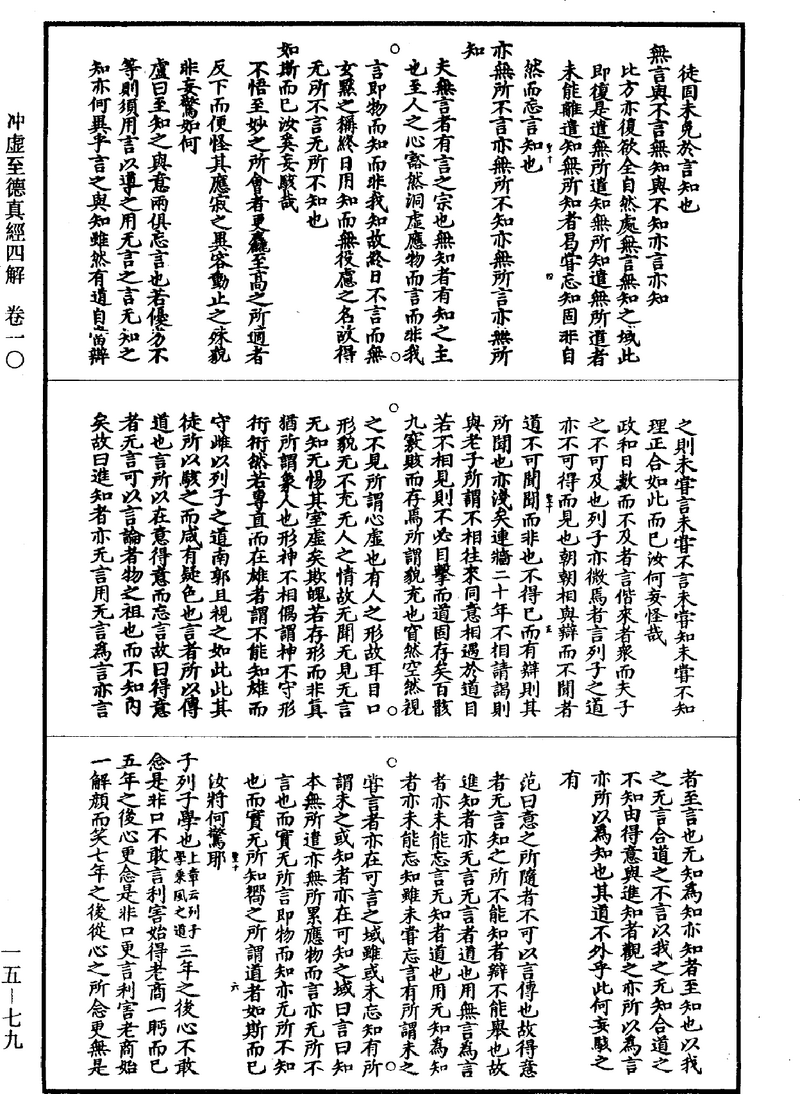 徒固未免於言知也
無言與不言無知與不知亦言亦知
比方亦復欲全自然處無言無知之域此
即復是遣無所遣知無所知遣無所遣者
未能離遣知無所知者曷嘗忘知固非自
然而忘言知也
亦無所不言亦無所不知亦無所言亦無所
知
夫無言者有言之宗也無知者有知之主
也至人之心豁然洞虛應物而言而非我
言即物而知而非我知故終日不言而無
玄默之稱終日用知而無役慮之名故得
无所不言无所不知也
如斯而已汝奚妄駭哉
不悟至妙之所會者更麤至高之所適者
反下而便怪其應寂之異容動止之殊貌
非妄驚如何
盧曰至知之與意兩俱忘言也若優劣不
等則須用言以導之用无言之言无知之
知亦何異乎言之與知雖然有道自當辯
之則未嘗言未嘗不言未嘗知未嘗不知
理正合如此而已汝何妄怪哉
政和日數而不及者言偕來者衆而夫子
之不可及也列子亦微焉者言列子之道
亦不可得而見也朝朝相與辯而不聞者
道不可聞聞而非也不得已而有辯則其
所聞也亦淺矣連墻二十年不相請謁則
與老子所謂不相往來同意相遇於道目
若不相見則不必目擊而道固存矣百骸
九竅賅而存焉所謂貌充也窅然空然視
之不見所謂心虛也有人之形故耳目口
形貌无不充无人之情故无聞无見无言
无知无惕其室虛矣欺魄若存形而非真
猶所謂象人也形神不相偶謂神不守形
衎衎然若專直而在雄者謂不能知雄而
守雌以列子之道南郭且視之如此此其
徒所以駭之而咸有疑色也言者所以傳
道也言所以在意得意而忘言故曰得意
者无言可以言論者物之祖也而不知內
矣故曰進知者亦无言用无言為言亦言
者至言也无知為知亦知者至知也以我
之无言合道之不言以我之无知合道之
不知由得意與進知者觀之亦所以為言
亦所以為知也其道不外乎此何妄駭之
有
范曰意之所隨者不可以言傳也故得意
者无言知之所不能知者辯不能舉也故
進知者亦无言无言者道也用無言為言
者亦未能忘言无知者道也用无知為知
者亦未能忘知雖未嘗忘言有所謂未之
嘗言者亦在可言之域雖或未忘知有所
謂未之或知者亦在可知之域曰言曰知
本無所遣亦無所累應物而言亦无所不
言也而實无所言即物而知亦无所不知
也而實无所知嚮之所謂道者如斯而已
汝將何驚耶
子列子學也上章云列子學乘風之道三年之後心不敢
念是非口不敢言利害始得老商一眄而已
五年之後心更念是非口更言利害老商始
一解顏而笑七年之後從心之所念更無是
冲虛至德真經四解　卷一〇
一五—七九